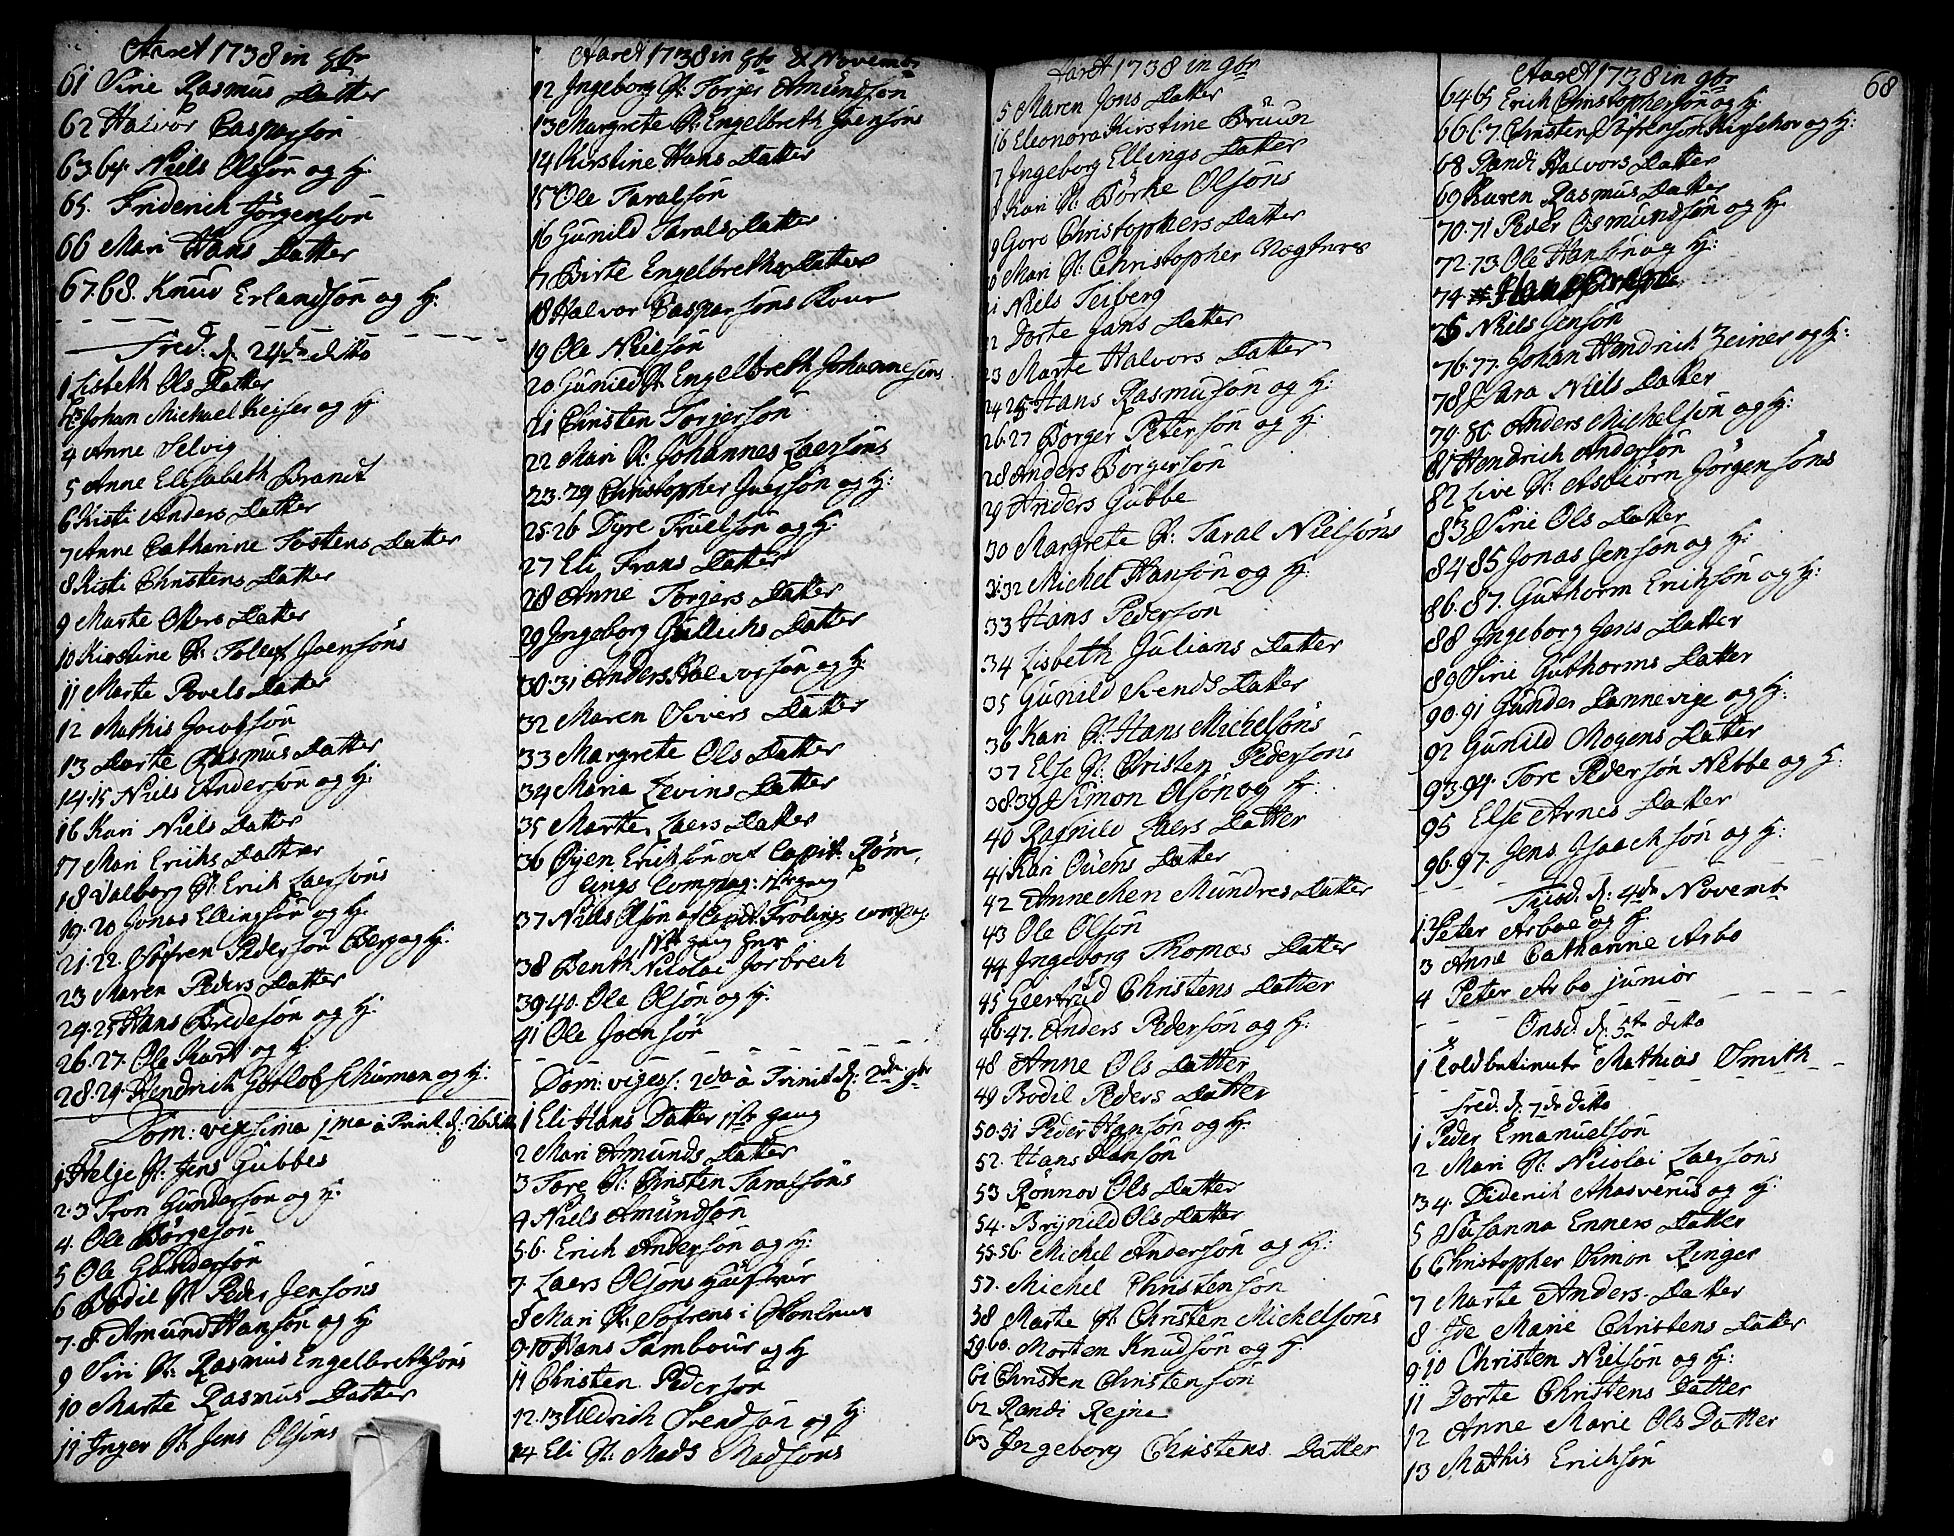 Aaret 1738 in 8br
61 Sirie Rasmus Datter
62 Halvor Caspersøn
63.64. Niels Olsøn og H:
65. Friderich Jørgensøn
66 Mari Hans Datter
67.68. Knud Erlandsøn og H:
Fred: d. 24de ditto
1 Lisbeth Ols Datter
2.3 Johan Michael Keiser og H
4 Anne Selvig
5 Anne Elisabeth Brandt
6 Kisti Anders Datter
7 Anne Catharine Tostens Datter
8 Kisti Christens Datter
9 Marte Olters Datter
10 Kirstine H: Tollef Joensøns
11 Marte Povels Datter
12 Mathis Jacobsøn
13 Dorte Rasmus Datter
14.15 Niels Andersøn og H:
16 Kari Niels Datter
17 Mari Erichs Datter
18 Valborg H: Erich Laersøns
19.20 Jonas Ellingsøn og H.
21.22. Søfren Pedersøn Berg og H:
23 Maren Peders Datter
24.25 Hans Bredesøn og H:
26.27. Ole Kart og H:
28.29. Hendrich Gotlob Schuman og H:
Dom: vigesima 1ma a Trinit d: 26 ditto
1 Helje H: Jens Gubbes
2.3 Tron Gundersøn og H:
4. Ole Børgesøn
5 Ole Gundersøn
6 Bodil H: Peder Jensøns
7.8 Amund Hansøn og H:
9 Siri H: Rasmus Engelbrethsøns
10 Marte Rasmus Datter
11 Inger H: Jens Olsøns
Aaret 1738 in 8br & Novembr
12 Ingeborg H: Torjer Amundsøn
13 Margrete H: Engelbreth Joensøns
14 Kirstine Hans Datter
15 Ole Taralsøn
16 Gunild Tarals Datter
17 Birte Engelbreths Datter
18 Halvor Caspersøns Kone
19 Ole Nielsøn
20 Gunild H: Engelbreth Johannesøns
21 Christen Torjersøn
22 Mari H: Johannes Laersøns
23.24 Christopher Iversøn og H:
25.26 Dyre Truelsøn og H:
27 Eli Frans Datter
28 Anne Torjers Datter
29 Ingeborg Gullichs Datter
30.31 Anders Halvorsøn og H:
32 Maren Sivers Datter
33 Margrete Ols Datter
34 Maria Levins Datter
35 Marte Laers Datter
36 Øjen Erichsøn af Capit: Røm-
lings Compag: 1ste gang
37 Niels Olsøn af Capit: Frølings compag:
1ste gang
38 Benth Nicolai Jorbrech
39.40. Ole Olsøn og H.
41 Ole Joensøn
Dom: vigess: 2da a Trinit d: 2den 9br
1 Eli Hans Datter 1ste gang
2 Mari Amunds Datter
3 Tore H: Christen Taralsøns
4 Niels Amundsøn
5.6. Erich Andersøn og H:
7. Laers Olsøns
8 Mari H: Søfrens i
9.10 Hans Tambour og H
11 Christen Pedersøn
12.13 Uldrich Svendsøn og H:
14 Eli H: Mads Madsøns
Aaret 1738 in 9br
5 Maren Jons Datter
16 Eleonora Kirstine Bruun
7 Ingeborg Ellings Datter
8 Kari H: Børke Olsøns
9 Goro Christophers Datter
Mari H: Christopher
21 Niels Teiberg
2 Dorte Jans Datter
23 Marte Halvors Datter
24 25. Hans Rasmusøn og H:
26.27 Borger Petersøn og H:
28 Anders Borgersøn
29 Anders Gubbe
30 Margrete H: Taral Nielsøns
31.32 Michel Hansøn og H:
33 Hans Pedersøn
34 Lisbeth Julians Datter
35 Gunild Svends Datter
36 Kari H: Hans Michelsøns
37 Else H: Christen Pedersøns
38 39 Simon Olsøn og H:
40 Ragnild Laers Datter
41 Kari Ouens Datter
42 Annechen Mundres Datter
43 Ole Olsøn
44 Ingeborg Thomæs Datter
45 Giertrud Christens Datter
46.47. Anders Pedersøn og H:
48 Anne Ols Datter
49 Bodil Peders Datter
50.51 Peder Hansøn og H.
52. Hans Hansøn
53 Rønnov Ols Datter
54. Brynild Ols Datter
55.56. Michel Andersøn og H:
57. Michel Christensøn
58 Marte H: Christen Michelsøns
59.60. Morten Knudsøn og H.
61 Christen Christensøn
62 Randi Rejne
63 Ingeborg Christens Datter
68
Aaret 1738 in 9br
64 65 Erich Christophersøn og H:
66.67. Christen Søfrensøn Kirsehov og H:
68 Randi Halvors Datter
69 Karen Rasmus Datter
70.71 Peder Osmundsøn og H.
72.73. Ole Hansøn og H:
74
75 Niels Jensøn
76.77. Johan Hendrich Zeiner og H:
78 Sara Niels Datter
79.80. Anders Michelsøn og H:
81 Hendrich Andersøn
82 Live H: Asbiørn Jørgensøns
83 Sirie Ols Datter
84 85 Jonas Jensøn og H:
86.87. Guthorm Erichsøn og H:
88 Ingeborg Jens Datter
89 Sirie Guthorms Datter
90.91 Gunder Dannevige og H:
92 Gunild Mogens Datter
93.94. Tore Pedersøn Nebbe og H:
95 Else Arnes Datter
96.97. Jens Isaachsøn og H:
Tiisd. d: 4de Novembr
1.2 Peter Arboe og H.
3 Anne Catharine Arbo
4 Peter Arbo junior
Onsd. d: 5te ditto
1 Coldbetiente Mathias Smith
Fred. d. 7de ditto
1 Peder Emanuelsøn
2 Mari H: Nicolai Laersøns
3.4. Diderich Ahasverus og H:
5 Susanna Enners Datter
6 Christopher Simon Ringer
7 Marte Anders Datter
8 Ide Marie Christens Datter
9.10 Christen Nielsøn og H:
11 Dorte Christens Datter
12 Anne Marie Ols Datter
13 Mathis Erichsøn